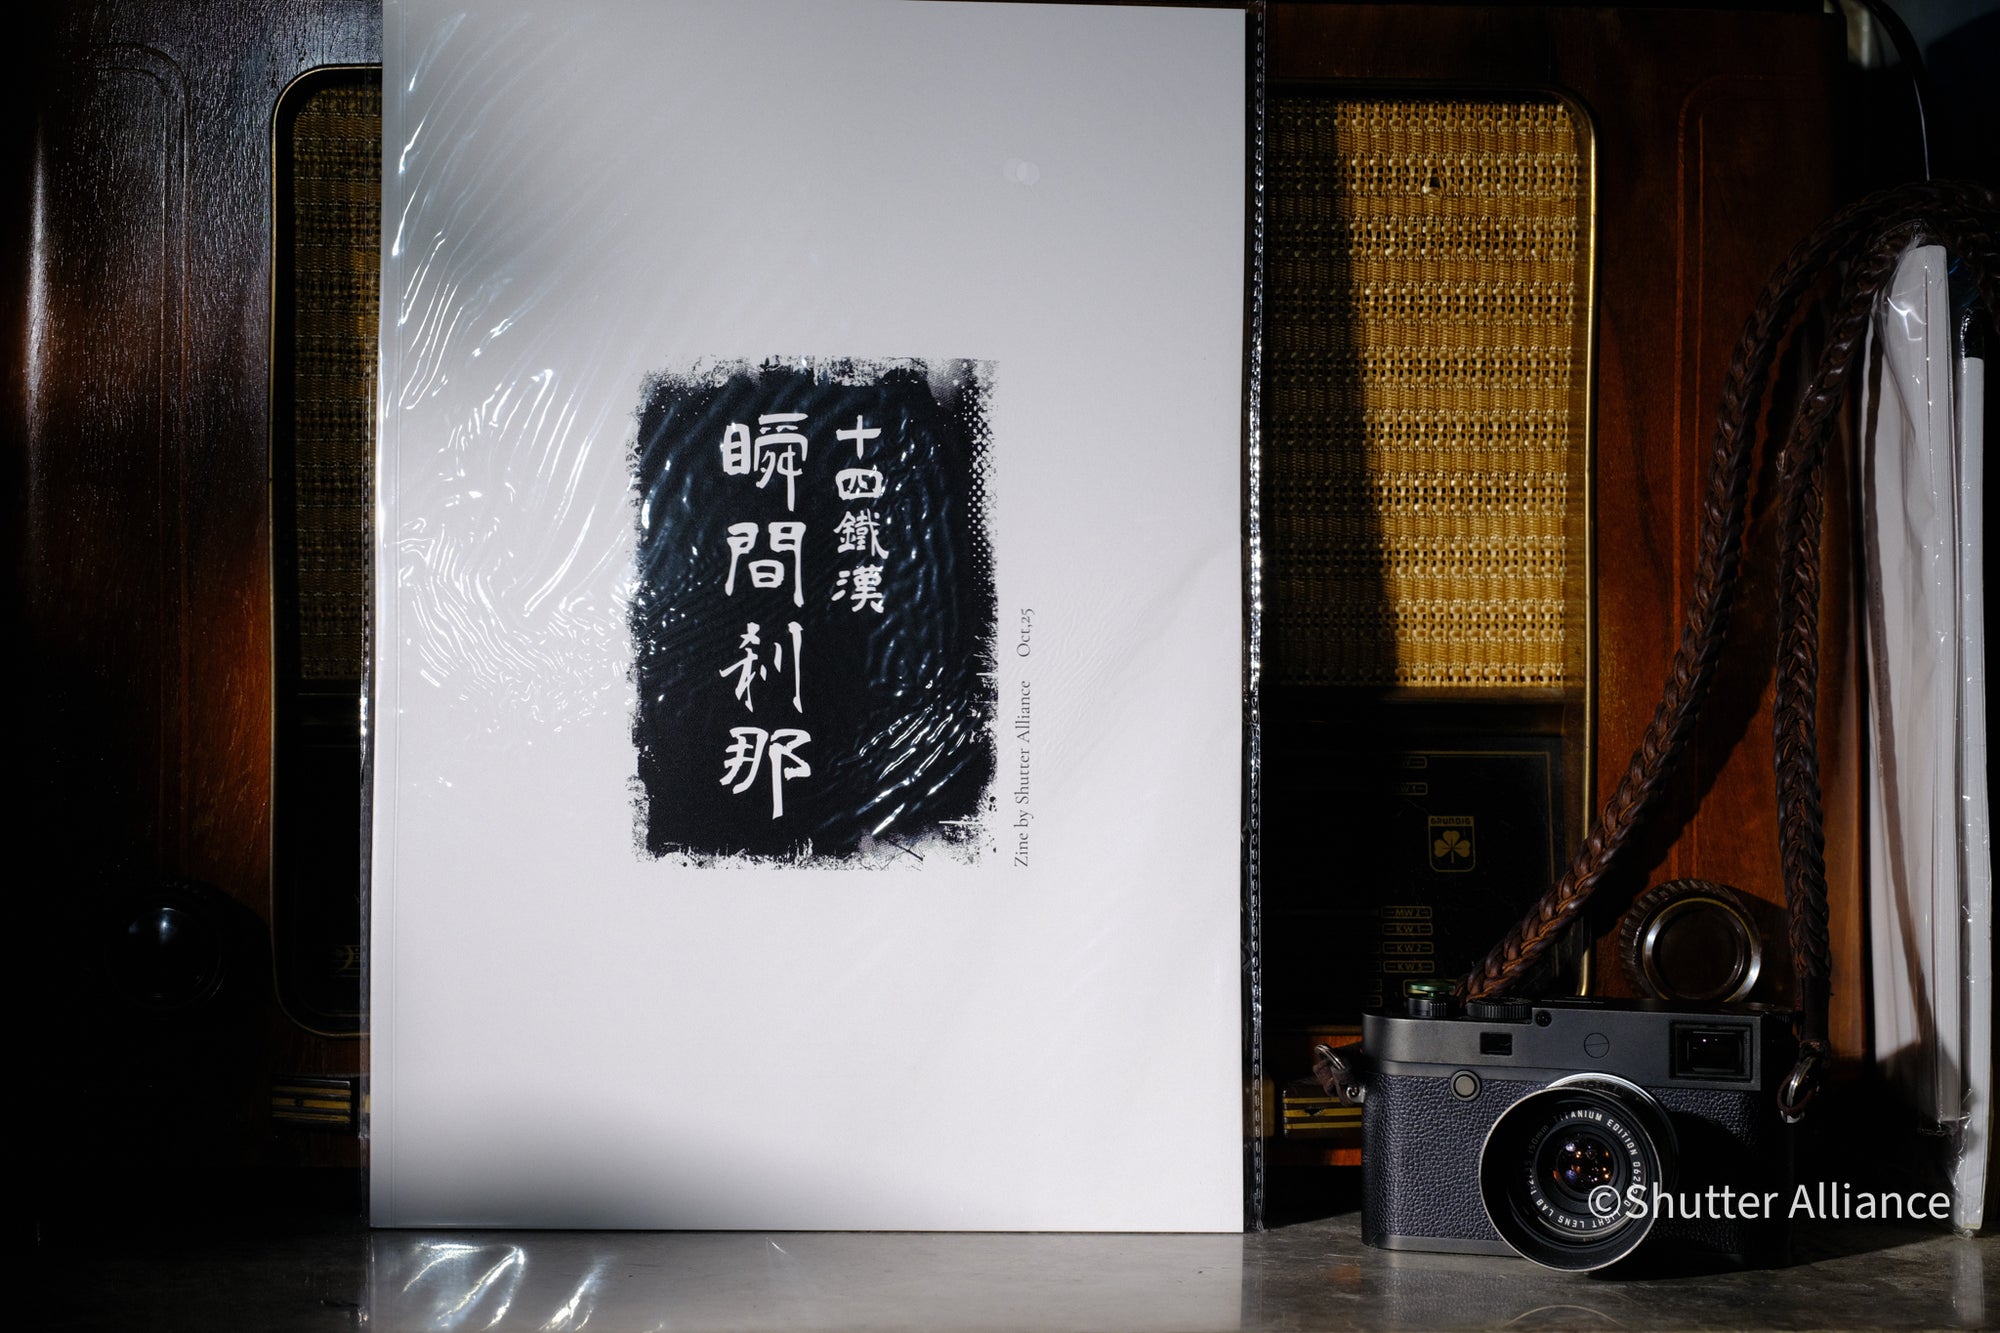 十四鐵漢
瞬間刹那
Zine by Shutter Alliance Oct,25
GRUNDIG
MW2
KW1
KW2
KW3
TITANIUM EDITION
LIGHT LENS LAB
©Shutter Alliance